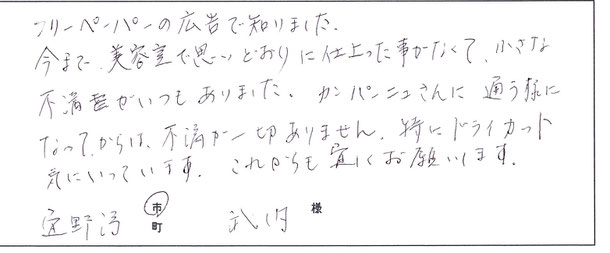 フリーペーパーの広告で知りました。
今まで、美容室で思いどおりに仕上った事がなくて、小さな
不満がいつもありました。カンパニュさんに通う様に
なってからは、不満が一切ありません。特にドライカット
気にいっています。これからも宜しくお願いします。
宜野湾 市 町 様